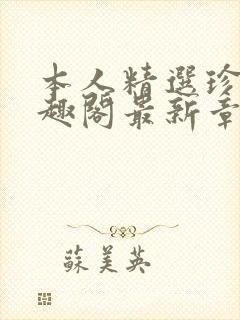 本人精選珍
趣閣最新章
蘇美英